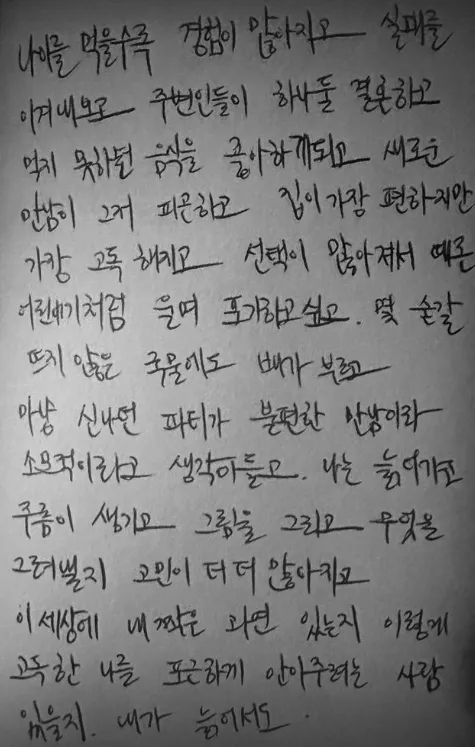 나이를 먹을수록 경험이 많아지고 실패를
이겨내보고 주변인들이 하나둘 결혼하고
먹지 못하던 음식을 좋아하게되고 새로운
만남이 그저 피곤하고 집이 가장 편하지만
가장 고독 해지고 선택이 많아져서 때론
어린애기처럼 울며 포기하고 싶고. 몇 숟갈
뜨지 않은 국물에도 배가 부르고
마냥 신나던 파티가 불편한 만남이라
소모적이라고 생각이들고. 나는 늙어가고
주름이 생기고 그림을 그리고 무엇을
그려낼지 고민이 더 더 많아지고
이 세상에 내 짝은 과연 있는지 이렇게
고독한 나를 포근하게 안아주려는 사람
있을지. 내가 늙어서도.